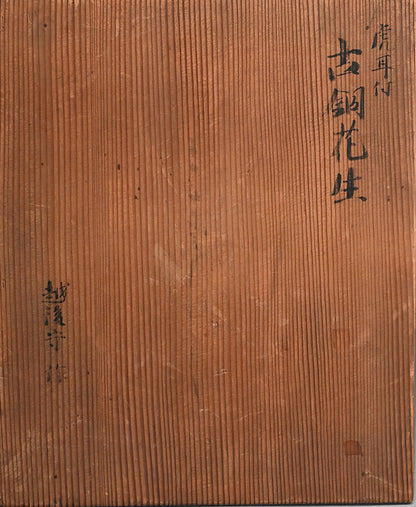 虎耳付
古銅花生
越後守作